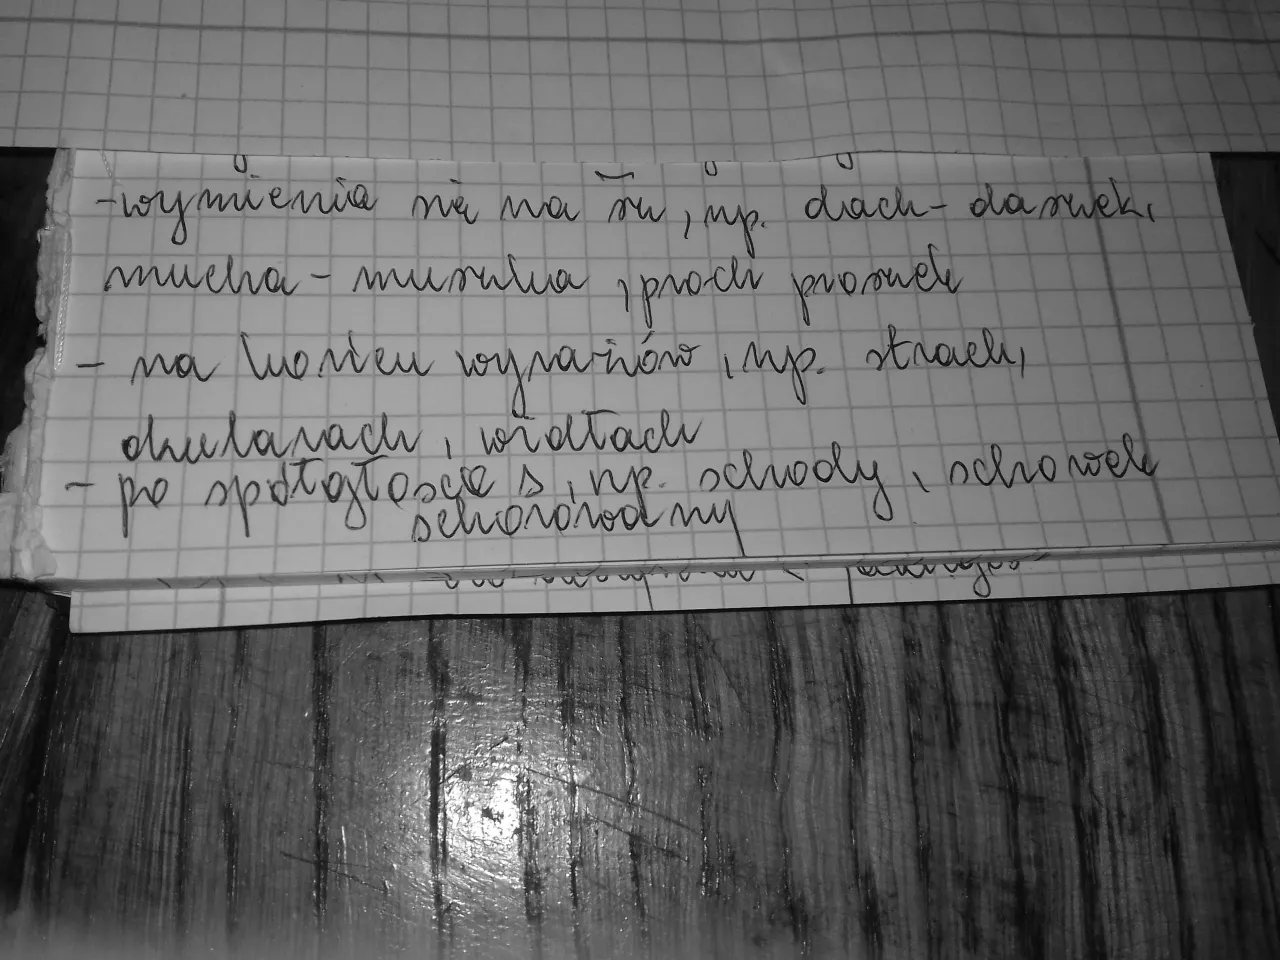 - wymienia się na sz, np. dach - daszek,
mucha - muszka, proch proszek
- na końcu wyrazów, np. strach,
okularach, widłach
- po spółgłosce s, np. schody, schowek
schorowodny